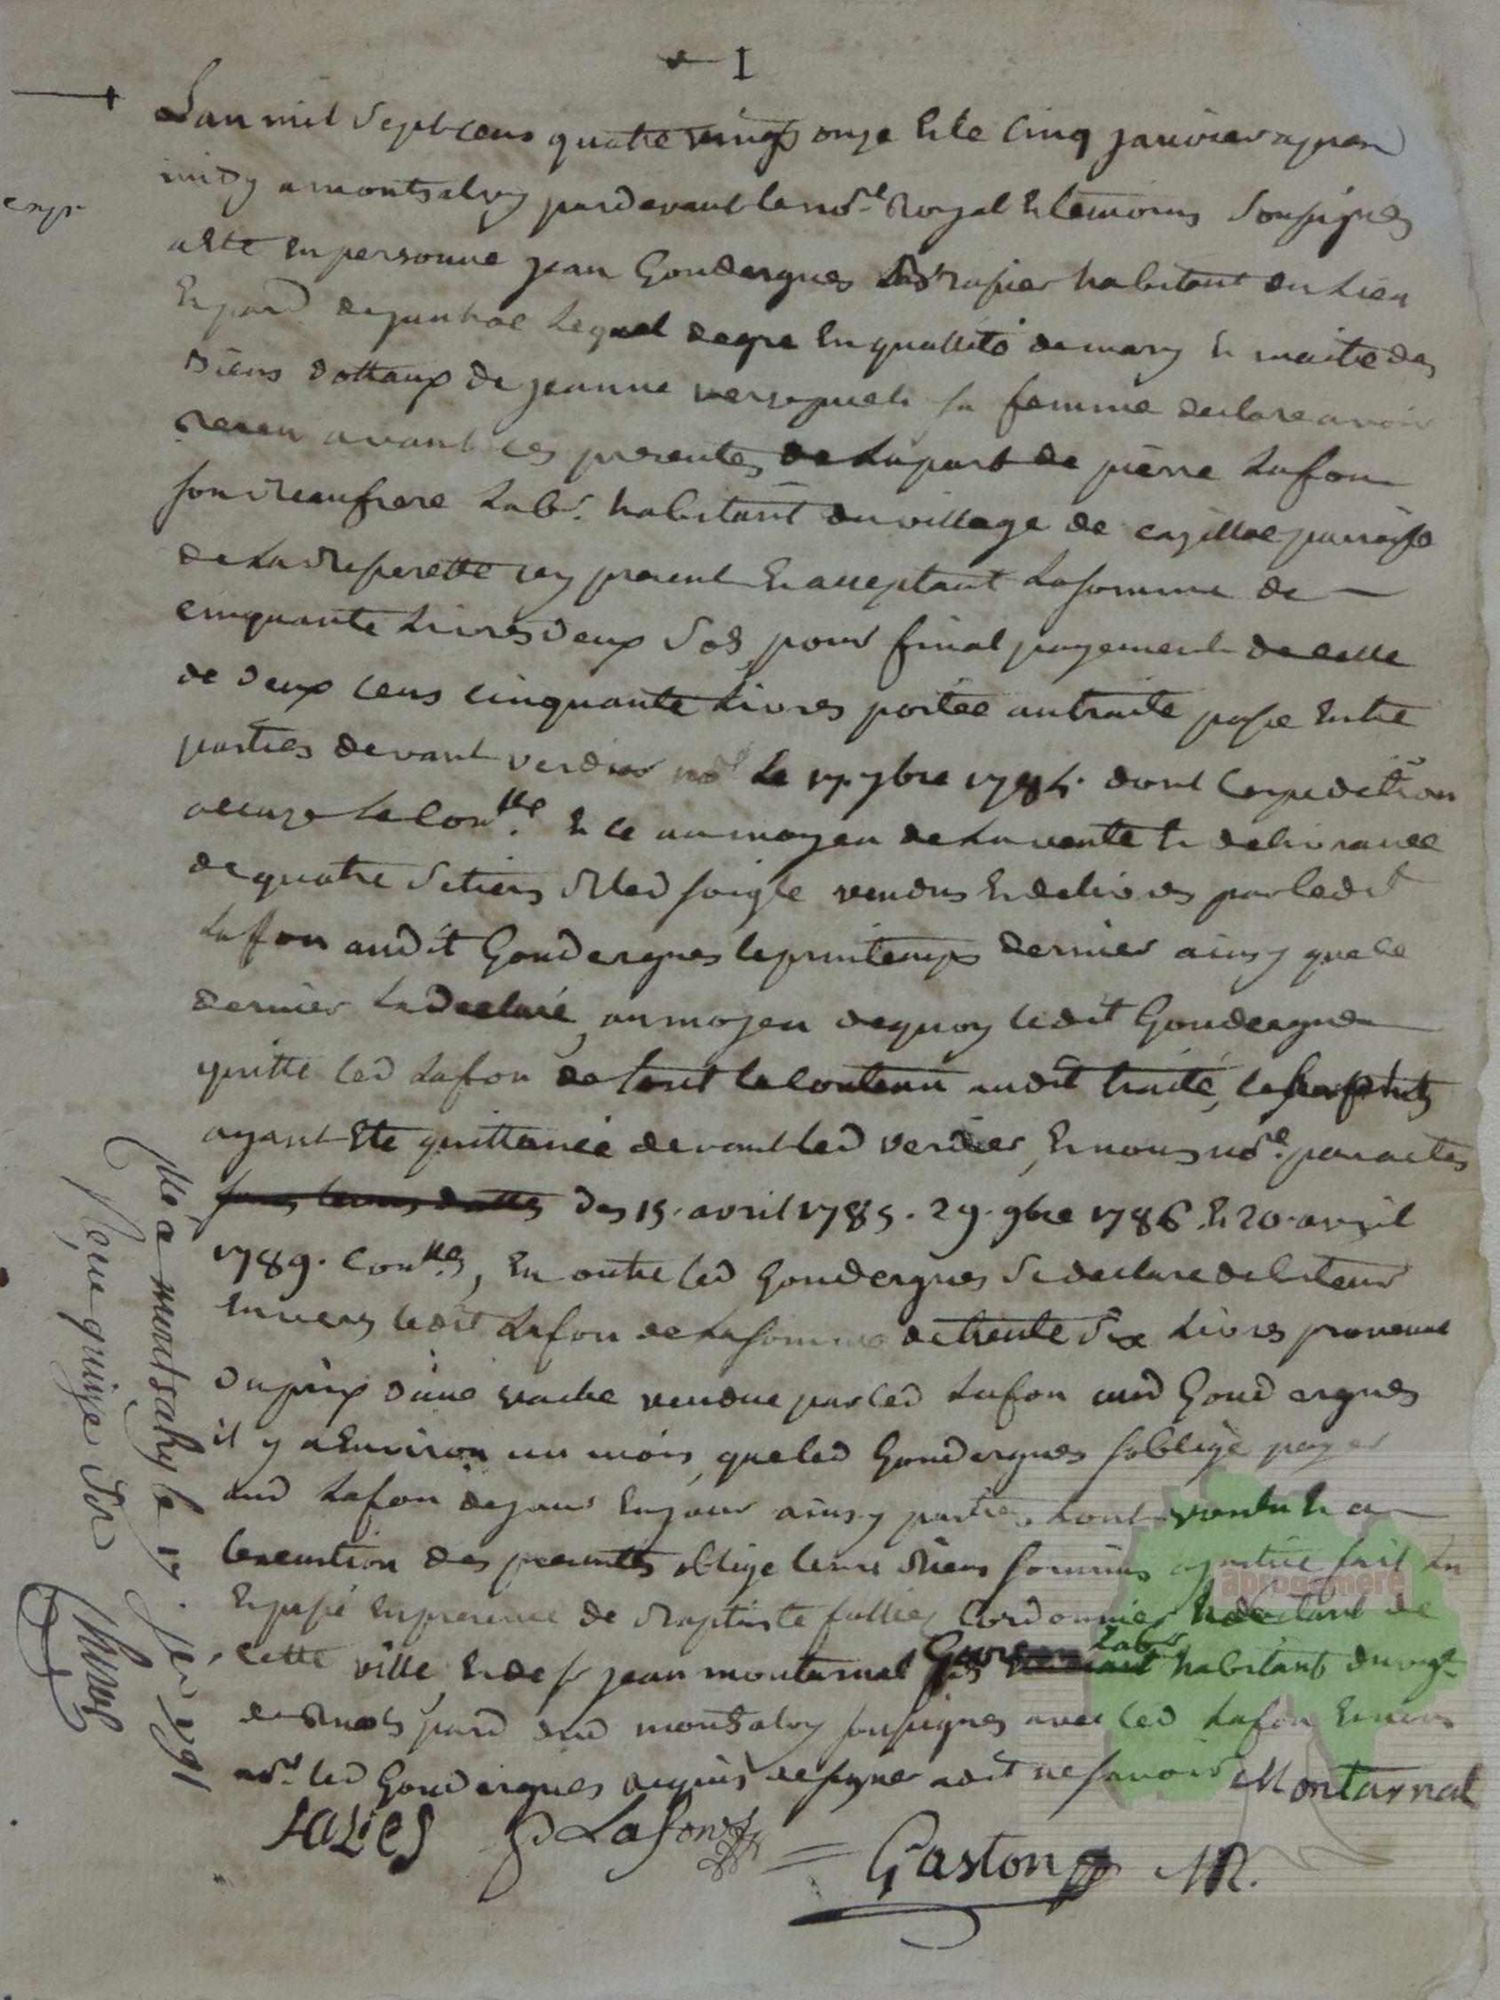 I
L'an mil sept cens quatre vingt onze et le cinq janvier apres
midy a montsalvy pardevant le no.re Royal et temoins soussignés
a été en personne jean Goudergues habitant du lieu
et par.d de junhac lequel de gre en quallité de mary et maitre des
biens dottaux de jeanne sa femme declare avoir
receu avant ces presentes de la part de pierre Lafon
son beaufrere lab.r habitant du village de cazillac paroisse
de Ladepeirette icy present et acceptant la somme de
cinquante livres deux sols pour final payement de celle
de deux cens cinquante livres portée au traité passé entre
parties devant verdier no.re le 17. 7bre 1784. dont l'expedition
a le con.lle et ce au moyen de la vente et delivrance
de quatre setiers bled soigle vendus et delivrés par ledit
Lafon audit Goudergues le printemps dernier ainsy que ce
dernier l'a declaré, au moyen de quoy ledit Goudergues
quitte led Lafon de tout le contenu audit traité, le
ayant été quittancé devant led verdier, et nous no.re par actes
des 15. avril 1785. 29. 9bre 1786. et 20. avril
1789. con.lles, en outre led Goudergues se declare debiteur
envers ledit Lafon de la somme de trente six livres provenant
du prix d'une vache vendue par led Lafon aud Goudergues
il y a environ un mois, que led Goudergues s'oblige payer
aud Lafon de jour en jour ainsy parties l'ont voulu et a
l'execution des presentes obligé leurs biens soumis a justice fait lu
et passé en presence de Baptiste fallies Cordonnier habitant de
cette ville, et de s.r jean montarnal lab.r habitant du vilg.e
de par.d dud montsalvy soussignés avec led Lafon et nous
no.re led Goudergues requis de signer a dit ne savoir Montarnal
faliès P Lafon Gaston NR.
expé
C.lé a montsalvy le 17. jer 1791
Reçu quinze sols